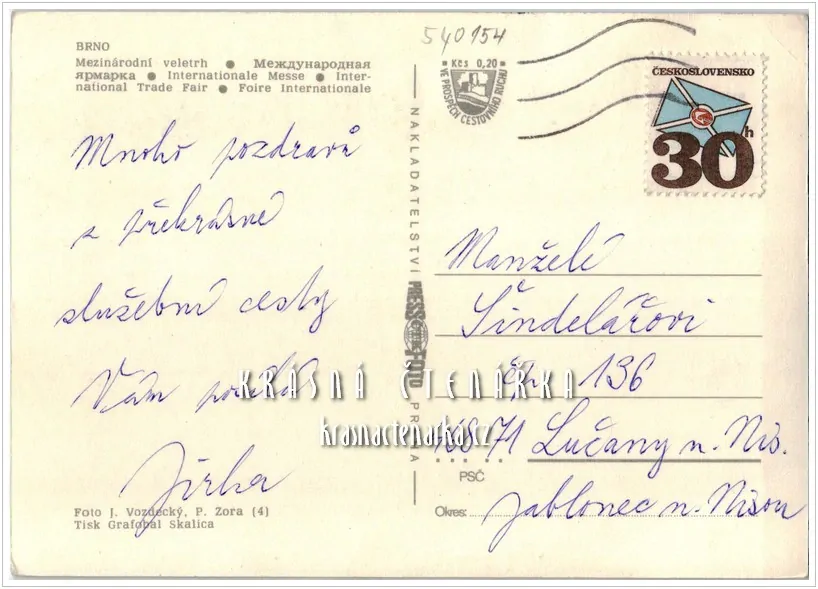 BRNO
Mezinárodní veletrh ● Международная
ярмарка ● Internationale Messe ● Inter-
national Trade Fair ● Foire Internationale
Mnoho pozdravů
z překrásné
služební cesty
Vám posílá
Jirka
Foto J. Vozdecký, P. Zora (4)
Tisk Grafobal Skalica
NAKLADATELSTVÍ PRESSFOTO PRAHA
540154
Kčs 0,20
VE PROSPĚCH CESTOVNÍHO RUCHU
ČESKOSLOVENSKO
30h
Manželé
Šindelářovi
čp. 136
468 71 Lučany n. Nis.
PSČ
Okres: Jablonec n. Nisou
KRÁSNÁ ČTENÁŘKA
krasnactenarka.cz